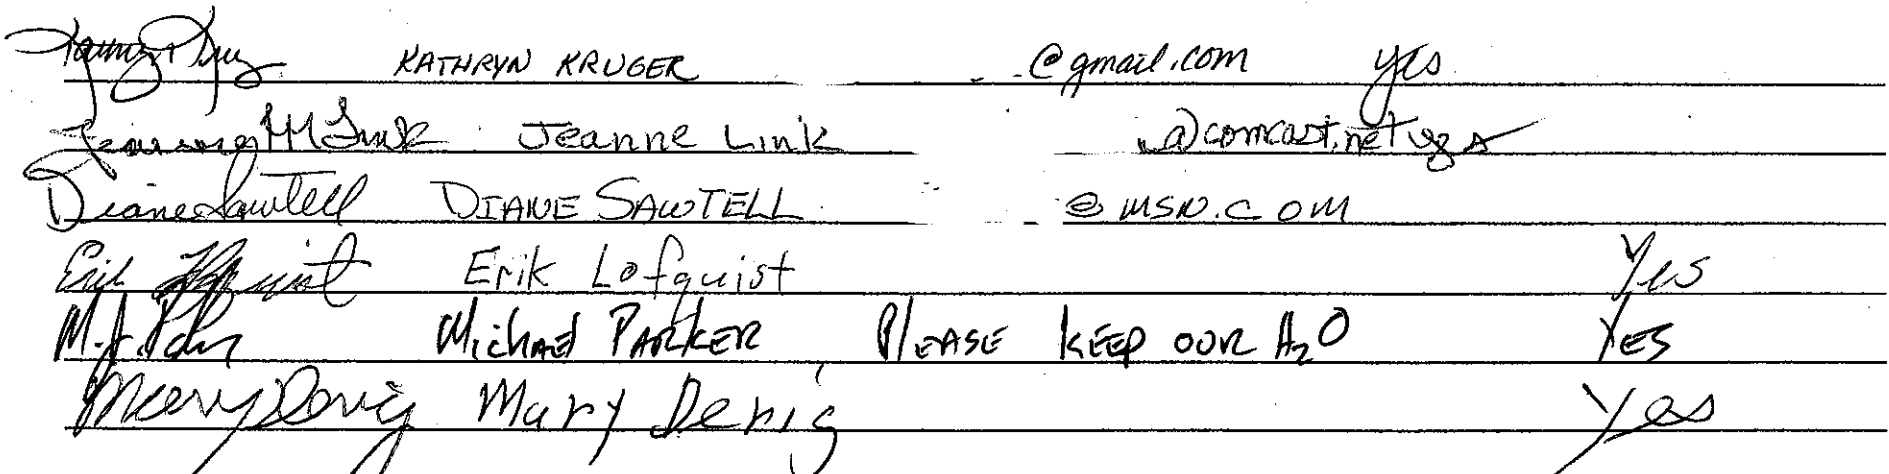 KATHRYN KRUGER @gmail.com yes
Jeanne M Link Jeanne Link @comcast.net yes
Diane Sawtell DIANE SAWTELL @MSN.COM
Erik Lofquist Erik Lofquist Yes
Michael PARKER PLEASE KEEP OUR H2O YES
Mary Derig Mary Derig Yes